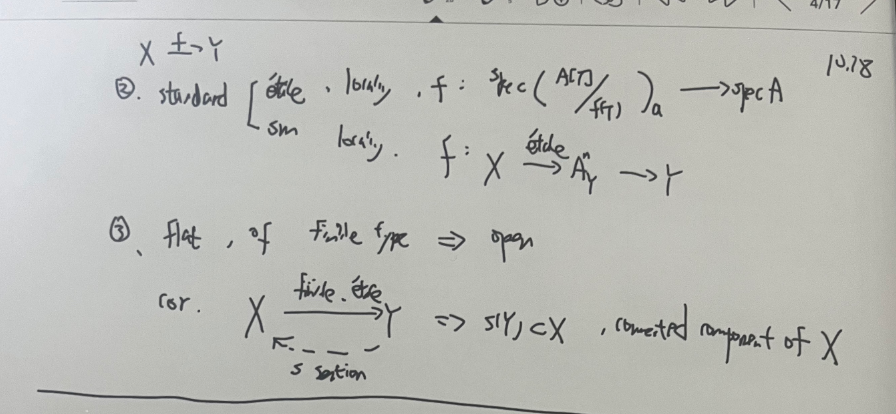 4/17
10.18
X \xrightarrow{f} Y
②. standard [ étale . locally . f : Spec ( A[T] / f(T) )_a → Spec A
sm locally . f : X \xrightarrow{étale} A^n_Y → Y
③. flat , of finite type ⇒ open
cor. X \xrightarrow{finite. étale} Y ⇒ s(Y) ⊂ X , connected component of X
s section